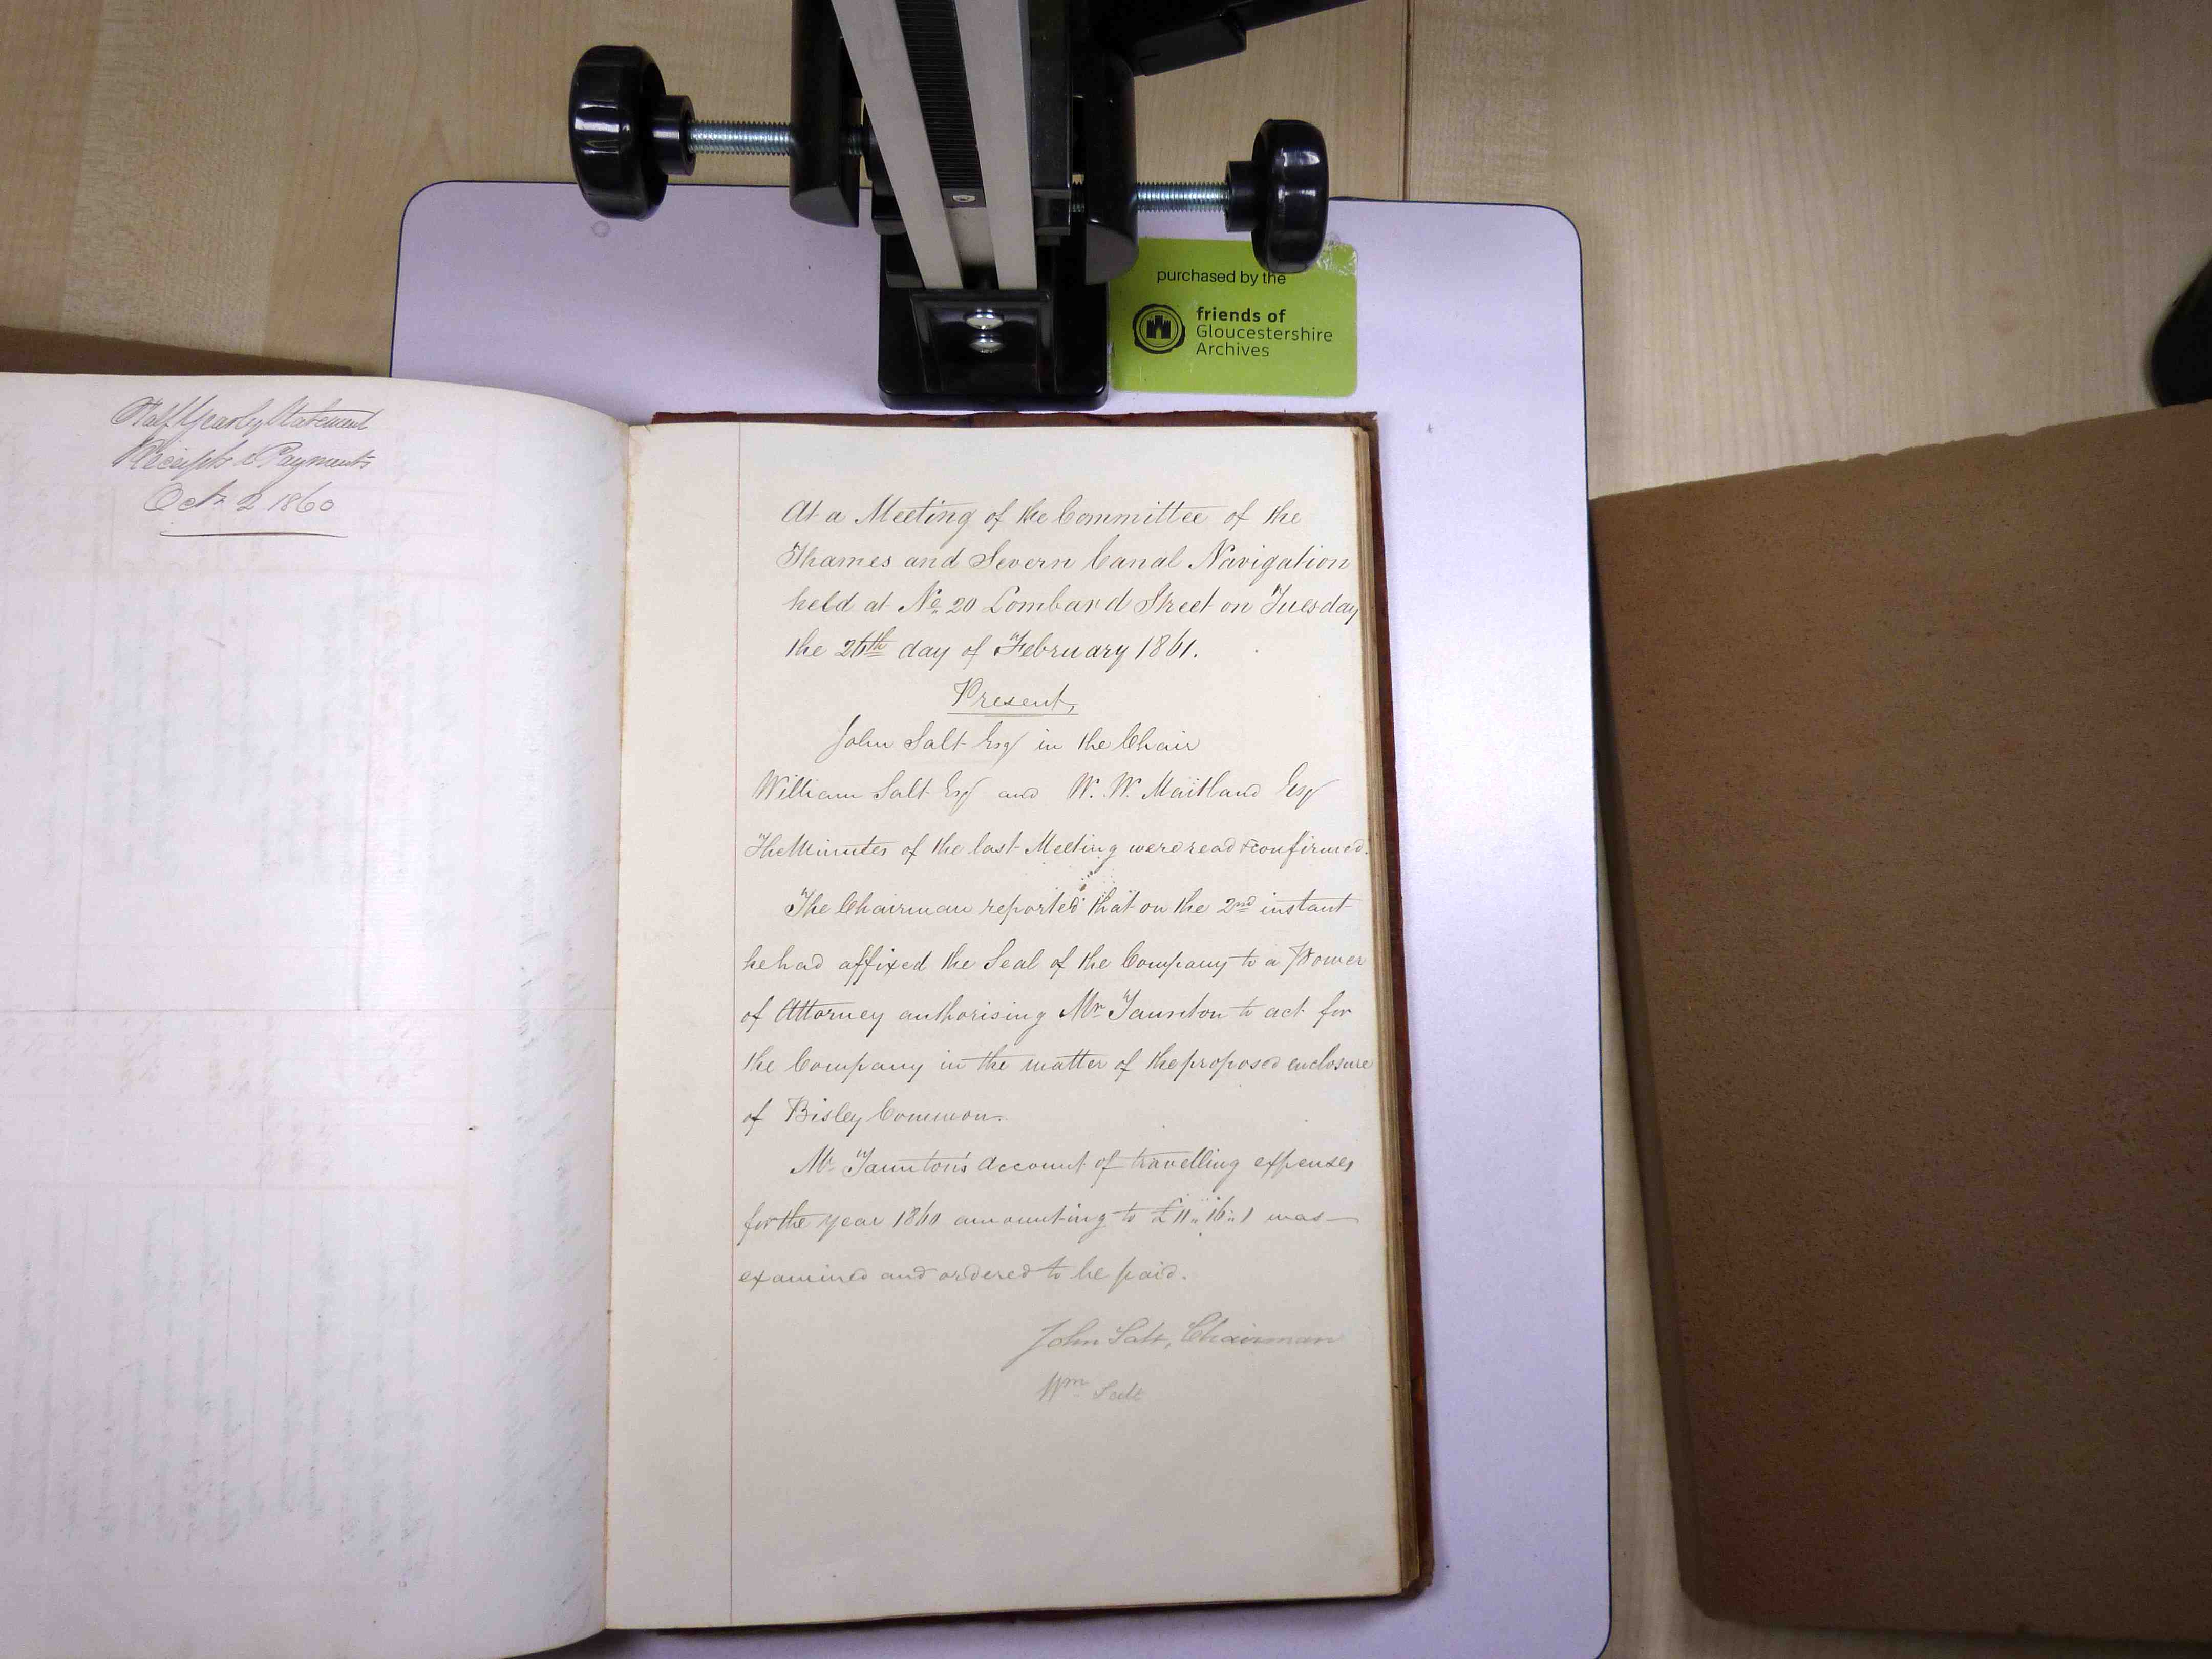 purchased by the
friends of
Gloucestershire
Archives
Half Yearly Statement
Receipts & Payments
Octr 2 1860
At a Meeting of the Committee of the
Thames and Severn Canal Navigation
held at No. 20 Lombard Street on Tuesday
the 26th day of February 1861.
Present,
John Salt Esqr in the Chair
William Salt Esqr and W. W. Maitland Esqr
The Minutes of the last Meeting were read & confirmed.
The Chairman reported that on the 2nd instant
he had affixed the Seal of the Company to a Power
of Attorney authorising Mr Taunton to act for
the Company in the matter of the proposed enclosure
of Bisley Common.
Mr Taunton's Account of travelling expenses
for the year 1860 amounting to £11..16..1 was
examined and ordered to be paid.
John Salt, Chairman
Wm Salt